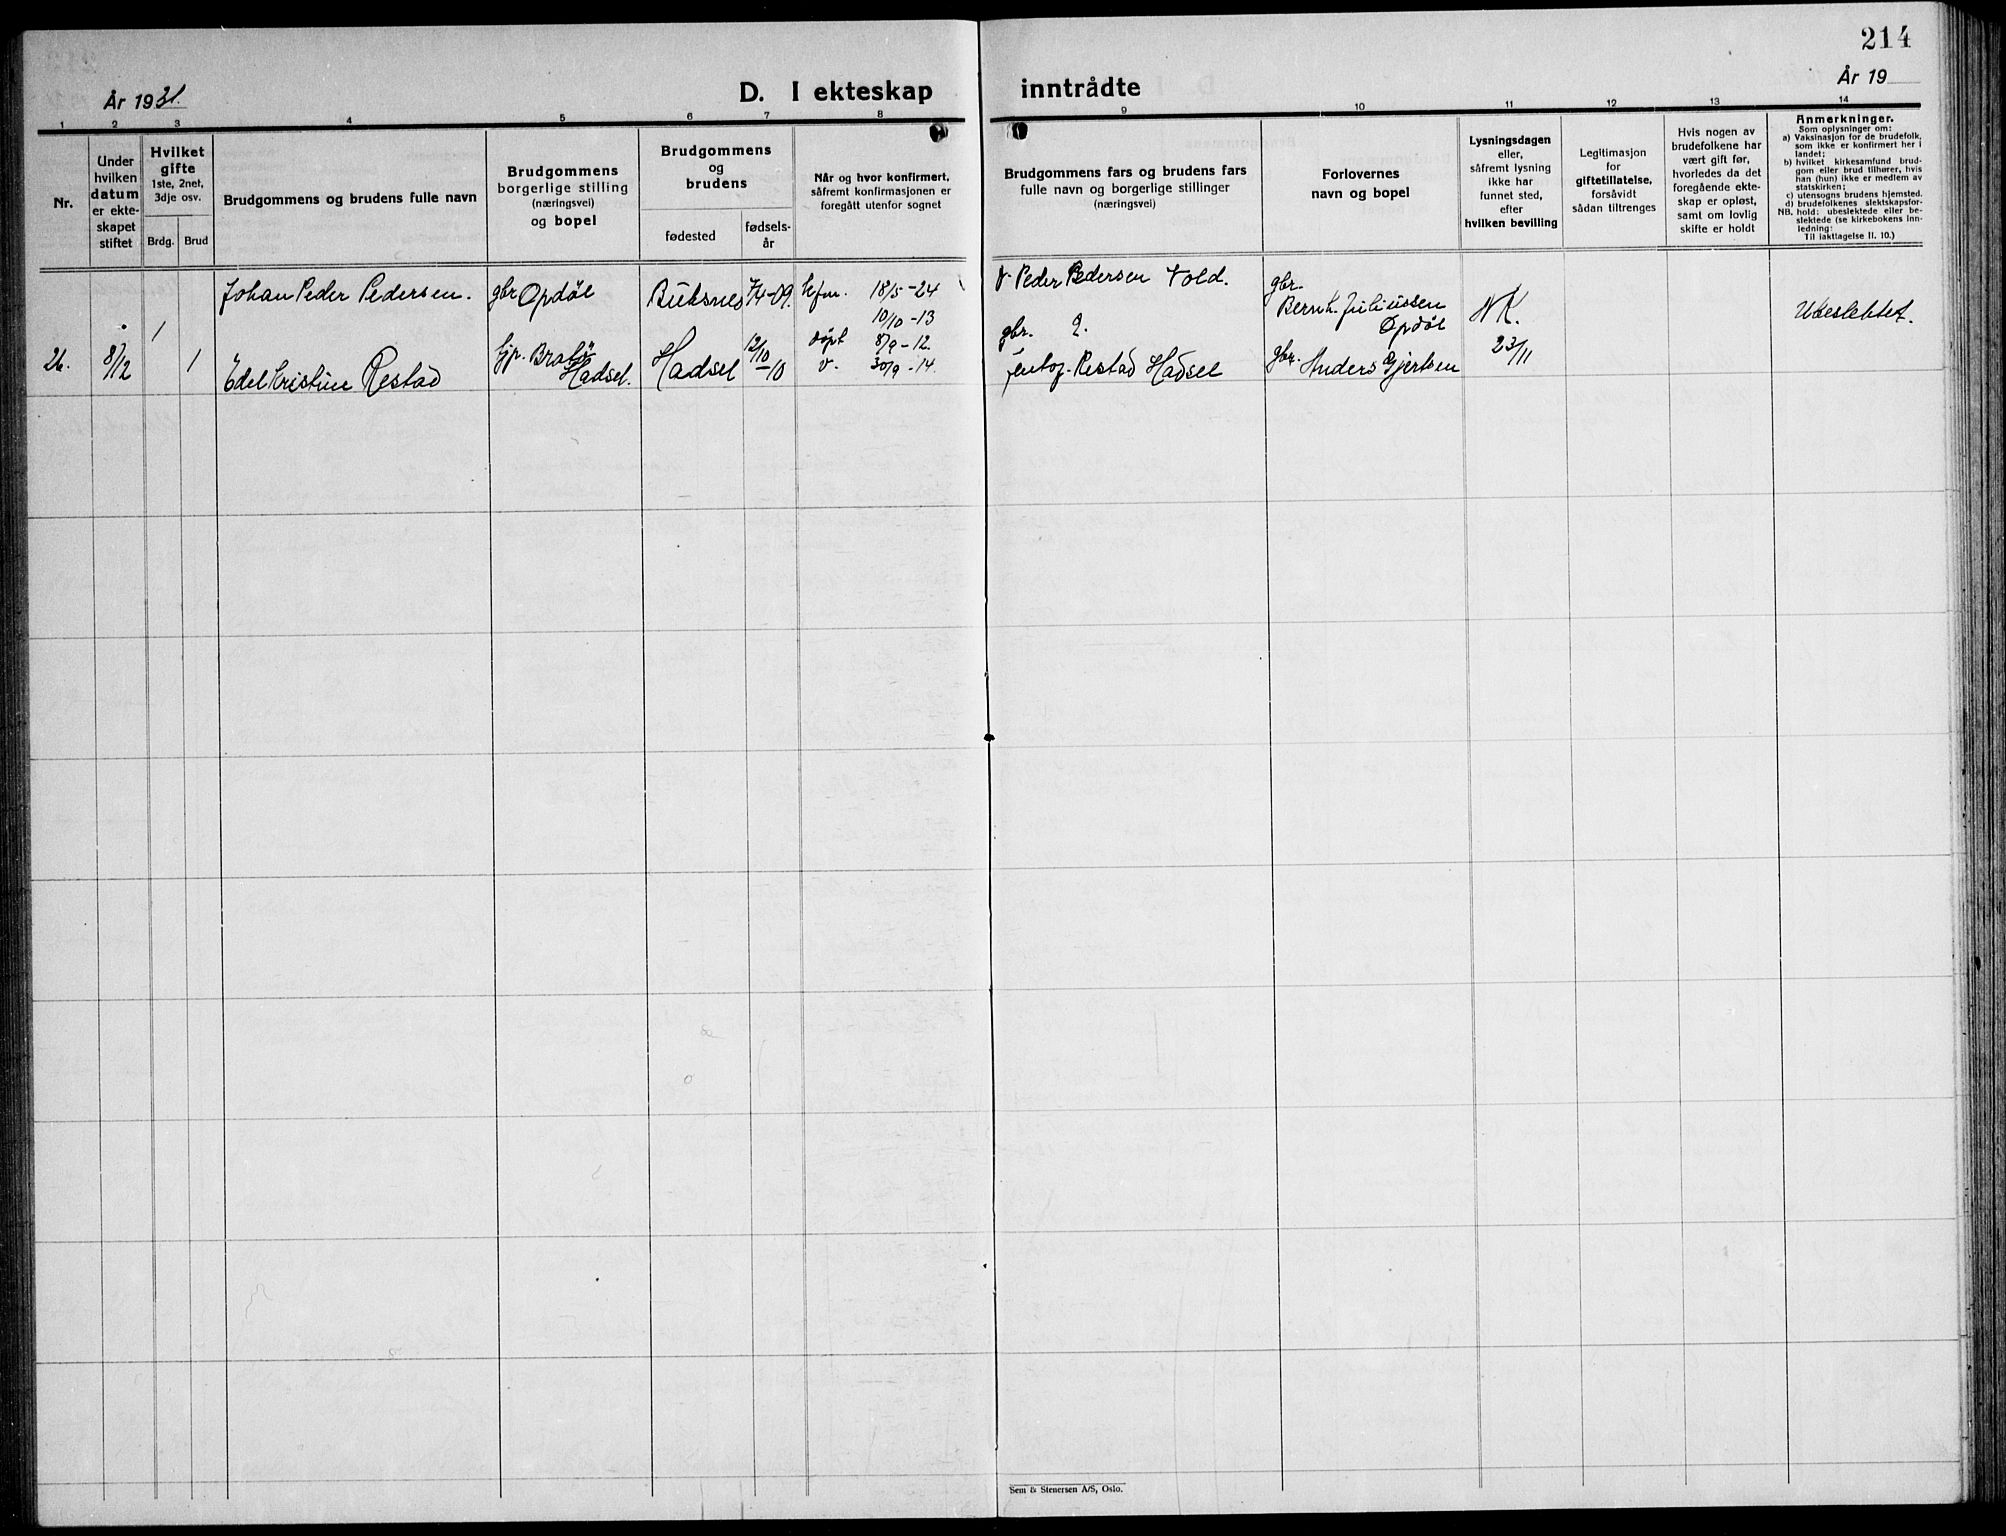 214
År 1931.
D. I ekteskap inntrådte
År 19
1 2 3 4 5 6 7 8 9 10 11 12 13 14
Nr.
Under
hvilken
datum
er ekte-
skapet
stiftet
Hvilket
gifte
1ste, 2net,
3dje osv.
Brdg. Brud
Brudgommens og brudens fulle navn
Brudgommens
borgerlige stilling
(næringsvei)
og bopel
Brudgommens
og
brudens
fødested
fødsels-
år
Når og hvor konfirmert,
såfremt konfirmasjonen er
foregått utenfor sognet
Brudgommens fars og brudens fars
fulle navn og borgerlige stillinger
(næringsvei)
Forlovernes
navn og bopel
Lysningsdagen
eller,
såfremt lysning
ikke har
funnet sted,
efter
hvilken bevilling
Legitimasjon
for
giftetillatelse,
forsåvidt
sådan tiltrenges
Hvis nogen av
brudefolkene har
vært gift før,
hvorledes da det
foregående ekte-
skap er opløst,
samt om lovlig
skifte er holdt
Anmerkninger.
Som oplysninger om:
a) Vaksinasjon for de brudefolk,
som ikke er konfirmert her i
landet;
b) hvilket kirkesamfund brud-
gom eller brud tilhører, hvis
han (hun) ikke er medlem av
statskirken;
c) utensogns brudens hjemsted.
d) brudefolkenes slektskapsfor-
NB. hold: ubeslektede eller be-
slektede (se kirkebokens inn-
ledning:
Til iakttagelse II. 10.)
26. 8/12 1 1
Johan Peder Pedersen.
Edel Kristine Restad
gbr Opdøl
Hadsel.
Buksnes 7/4-09.
Hadsel 12/10-10
kfm. 18/5-24
10/10-13
døpt 8/9-12.
v. 30/9-14.
Peder Pedersen Vold.
gbr.
Restad Hadsel
gbr.
Bernh. Juliussen
Opdøl
gbr. Anders Gjertsen
NK.
23/11
Ubeslektet.
Sem & Stenersen A/S, Oslo.